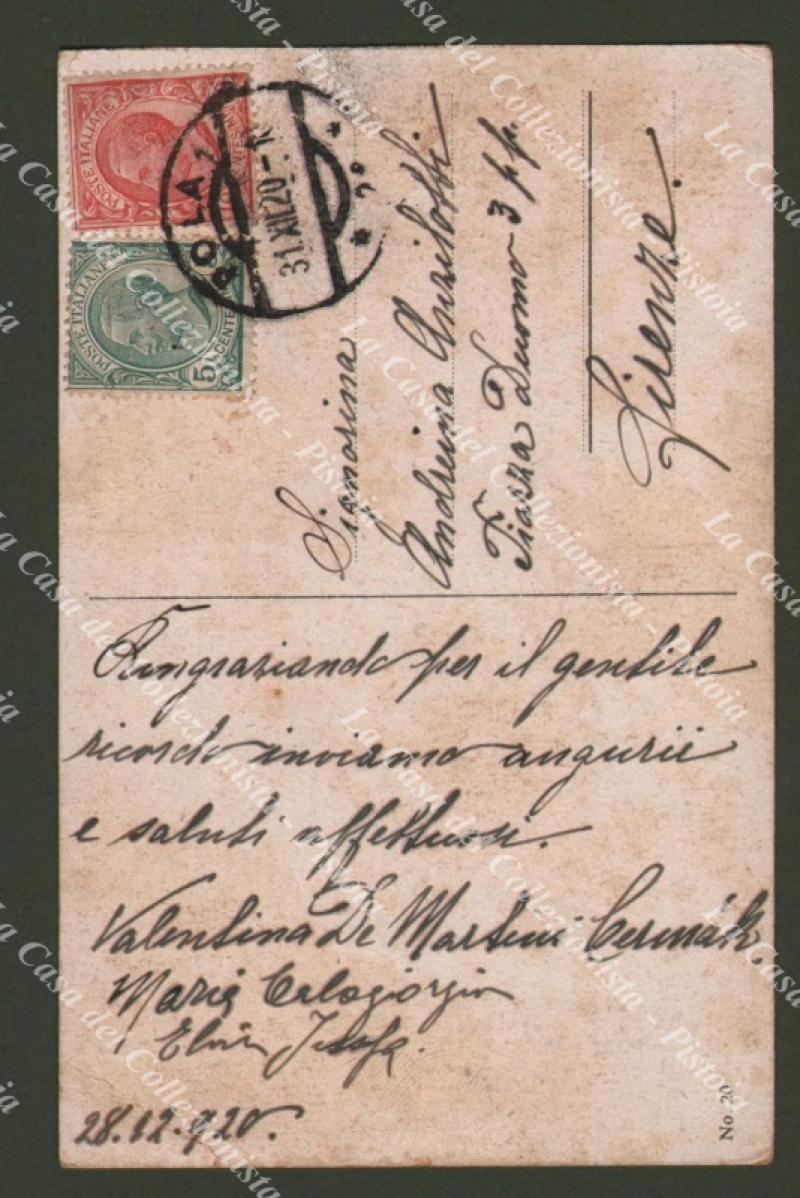 POSTE ITALIANE
POSTE ITALIANE
5 CENTE
POLA 1
31.XII.20
Signorina
Andreina
Piazza Duomo 3 pp.
Firenze.
Ringraziando per il gentile
ricordo inviamo augurii
e saluti affettuosi.
Valentina De Martini Cermák.
Maria
28.12.920.
No. 20
La Casa del Collezionista - Pistoia